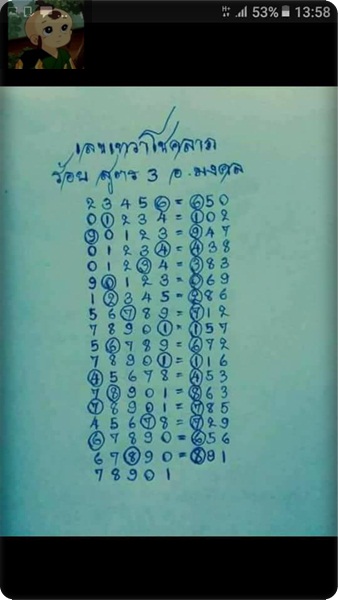 53% 13:58
เลขเทวาโชคลาภ
ร้อย สูตร 3 อ.มงคล
2 3 4 5 6 = 6 5 0
0 1 2 3 4 = 1 0 2
9 0 1 2 3 = 9 4 7
0 1 2 3 4 = 4 3 8
0 1 2 3 4 = 3 8 3
9 0 1 2 3 = 0 6 9
1 2 3 4 5 = 2 8 6
5 6 7 8 9 = 7 1 2
7 8 9 0 1 = 1 5 7
5 6 7 8 9 = 6 7 2
7 8 9 0 1 = 1 1 6
4 5 6 7 8 = 4 5 3
7 8 9 0 1 = 8 6 3
7 8 9 0 1 = 7 8 5
4 5 6 7 8 = 7 2 9
6 7 8 9 0 = 6 5 6
6 7 8 9 0 = 8 8 1
7 8 9 0 1